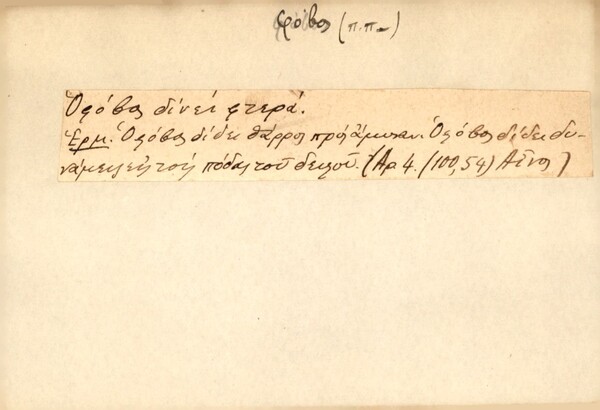 φόβος (π.π.)
Ὁ φόβος δίνει φτερά.
Ἑρμ. Ὁ φόβος δίδει θάρρος πρὸς ἄμυναν. Ὁ φόβος δίδει δυ-
νάμεις εἰς τοὺς πόδας τοῦ δειλοῦ. (Αρ 4. (100,54) Αἶνος)